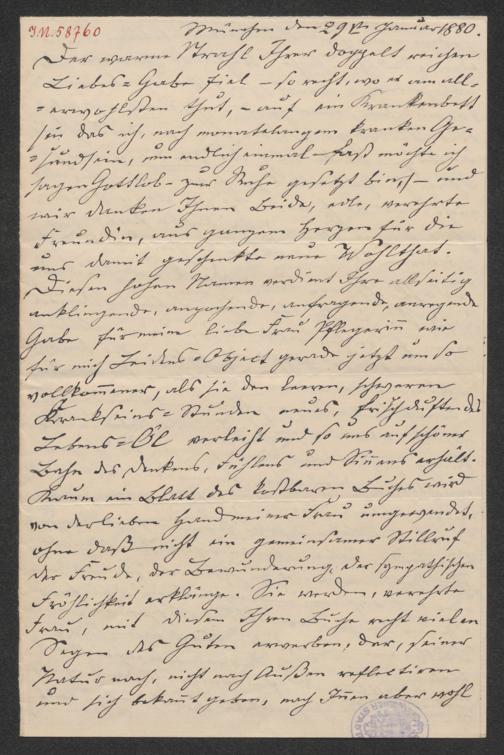 I.N. 58760
München den 29ten Januar 1880.
Der warme Strahl Ihrer doppelt reichen
Liebes=Gabe fiel – so recht, wo es am all-
=erwohlsten thut, – auf ein Krankenbett
in das ich, nach monatelangem kranken Ge-
=sundsein, nun endlich einmal – fast möchte ich
sagen Gottlob – zur Ruhe gesetzt bin, – und
wir danken Ihnen Beide, edle, verehrte
Freundin, aus ganzem Herzen für die
uns damit geschenkte neue Wohlthat.
Diesen hohen Namen verdient Ihre allseitig
anklingende, ansprechende, anfragende, anregende
Gabe für meine liebe Frau Pflegerin wie
für mich Leidens=Object gerade jetzt um so
vollkommener, als sie den leeren, schweren
Krankseins=Stunden neues, frisch duftendes
Lebens=Öl verleiht und so uns auf schöner
Bahn des Denkens, Fühlens und Sinnens erhält.
Kaum ein Blatt des kostbaren Buches wird
von der lieben Hand meiner Frau umgewendet,
ohne daß nicht ein gemeinsamer Stillruf
der Freude, der Bewunderung, der sympathischen
Fröhlichkeit erklänge. Sie werden, verehrte
Frau, mit diesem Ihrem Buche recht vielen
Segen des Guten erwerben, der, seiner
Natur nach, nicht nach Außen reflectiren
und sich bekannt geben, nach Innen aber wohl